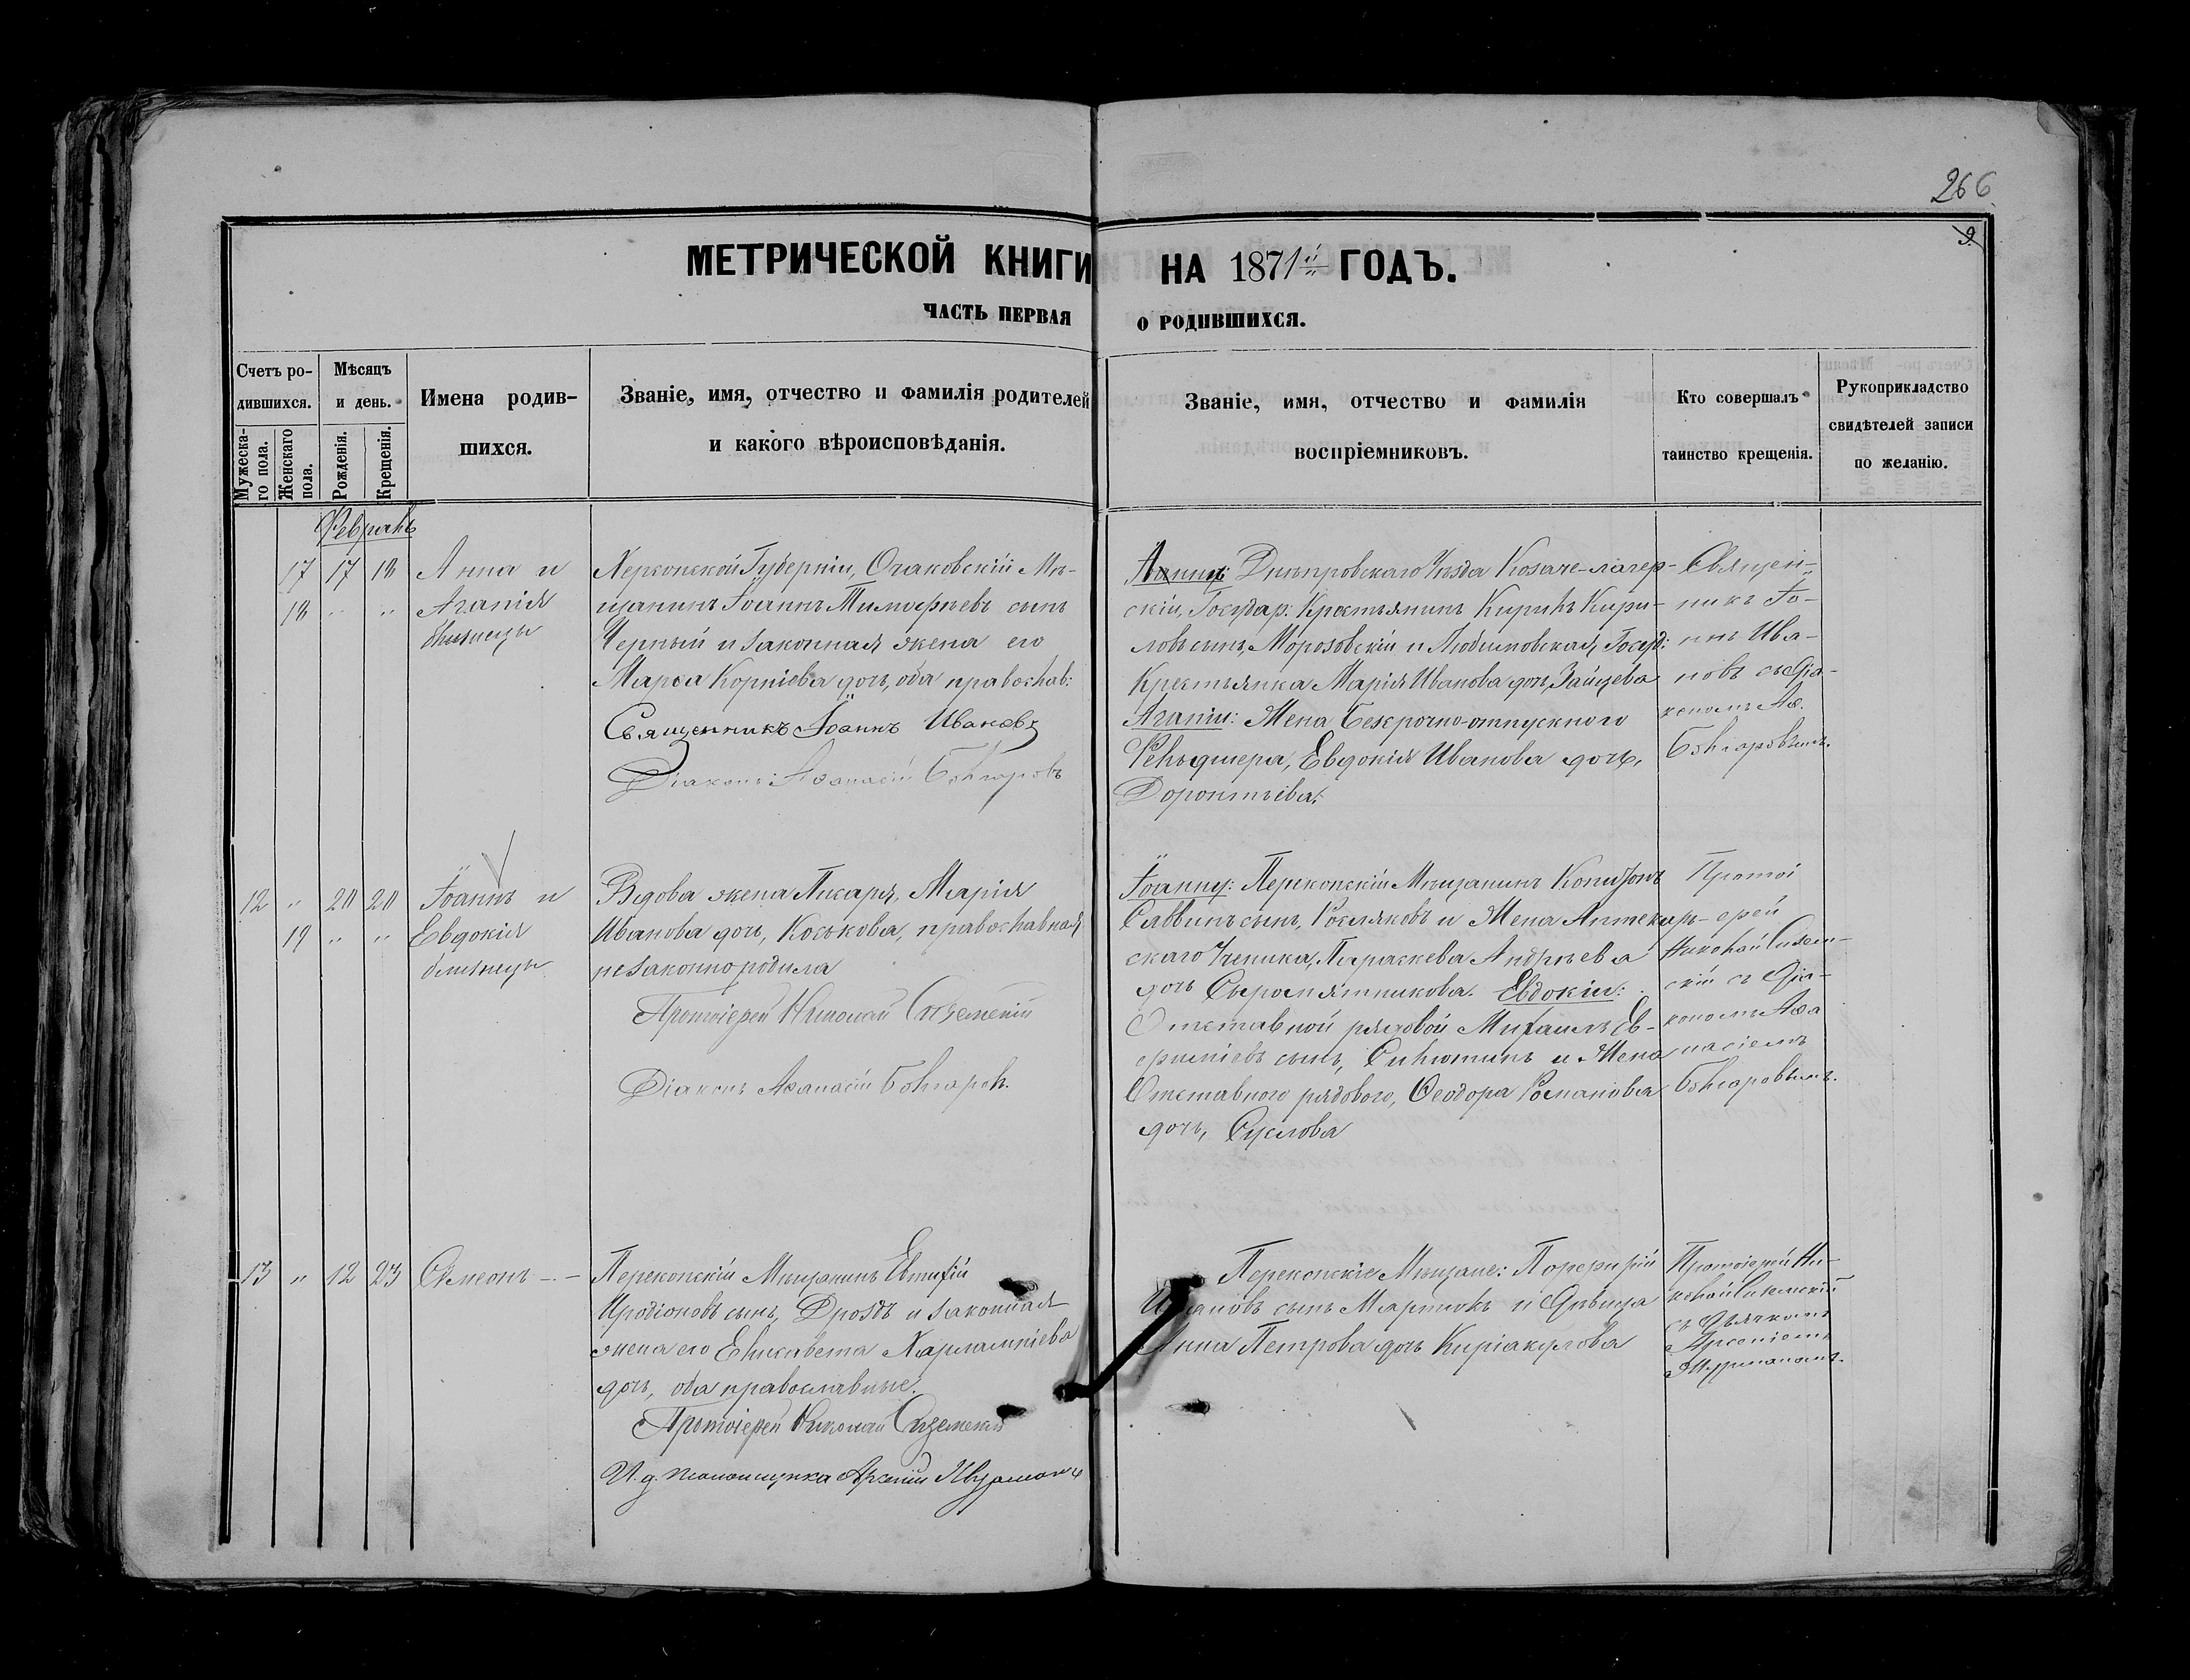 266
9
МЕТРИЧЕСКОЙ КНИГИ НА 1871й ГОДЪ.
ЧАСТЬ ПЕРВАЯ О РОДИВШИХСЯ.
Счетъ ро-
дившихся.
Мужеска-
го пола.
Женскаго
пола.
Мѣсяцъ
и день.
Рожденія.
Крещенія.
Имена родив-
шихся.
Званіе, имя, отчество и фамилія родителей
и какого вѣроисповѣданія.
Званіе, имя, отчество и фамилія
воспріемниковъ.
Кто совершалъ
таинство крещенія.
Рукоприкладство
свидѣтелей записи
по желанію.
Февраль
17 17 18 Анна и
18 " " Агапія
близнецы
Херсонской Губерніи, Очаковскій Мѣ-
щанинъ Іоаннъ Тимофѣевъ сынъ
Черный и законная жена его
Марѳа Корніева дочь, оба православ:
Священникъ Іоаннъ Ивановъ
Діаконъ Аѳанасій Болгаровъ
Анны: Днѣпровскаго Уѣзда Козаче-лагер-
скій, Государ: Крестьянинъ Кирилъ Кири-
ловъ сынъ, Морозовскій и Любимовская, Госуд:
Крестьянка Марія Иванова дочь, Зайцева
Агапіи: Жена Безсрочно-отпускного
Фельдшера, Евдокія Иванова дочь,
Доронтьева.
Священ-
никъ Іо-
аннъ Ива-
новъ съ Діа-
кономъ Аѳ.
Болгаровымъ.
12 " 20 20 Іоаннъ и
19 " " Евдокія
близнецы
Вдова жена Писаря, Марія
Иванова дочь, Коськова, православная
незаконно родила
Протоіерей Николай Сиземскій
Діаконъ Аѳанасій Болгаровъ.
Іоанну: Перекопскій Мѣщанинъ
Саввинъ сынъ, Росляковъ и Жена Аптекар-
скаго Ученика, Параскева Андрѣева
дочь Сыромятникова. Евдокіи:
Отставной рядовой Михаилъ Ев-
фиміевъ сынъ, Силютинъ и Жена
Отставного рядового, Ѳеодора Романова
дочь, Суслова
Протоі
ерей
Николай Сизем-
скій съ Діа-
кономъ Аѳа
насіемъ
Болгаровымъ.
13 " 12 23 Симеонъ
Перекопскій Мѣщанинъ Евтихій
Иродіоновъ сынъ, Дроздъ и законная
жена его Елисавета Харлампіева
дочь, оба православные.
Протоіерей Николай Сиземскій
И. д. псаломщика Арсеній Мурманъ
Перекопскіе Мѣщане: Порфирій
Ивановъ сынъ Мартюкъ и Дѣвица
Анна Петрова дочь Киріакулова
Протоіерей Ни-
колай Сиземскій
съ Дьячкомъ
Арсеніемъ